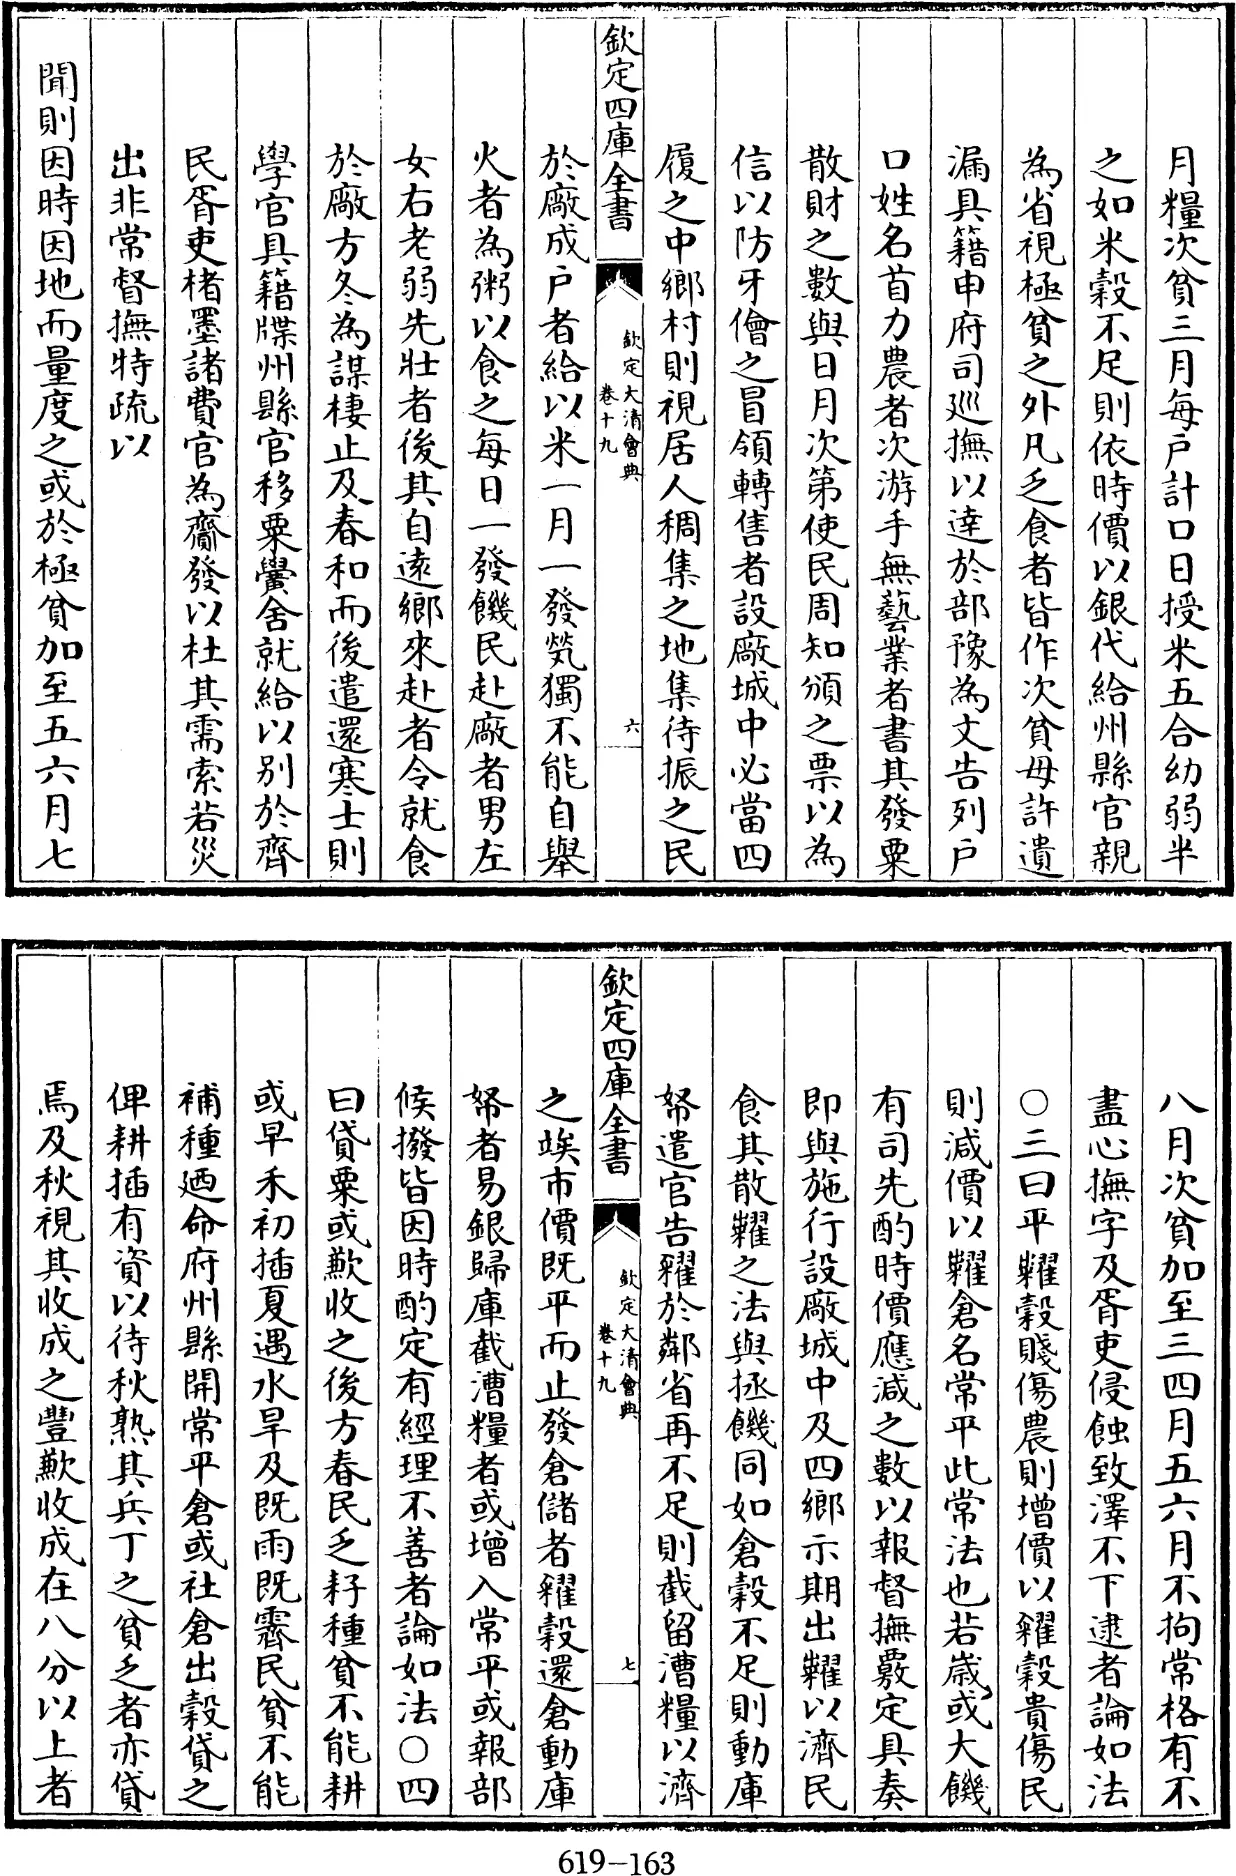 月糧次貧三月每户計口日授米五合幼弱半
之如米穀不足則依時價以銀代給州縣官親
為省視極貧之外凡乏食者皆作次貧毋許遺
漏具籍申府司巡撫以達於部豫為文告列户
口姓名首力農者次游手無藝業者書其發粟
散財之數與日月次第使民周知頒之票以為
信以防牙儈之冒領轉售者設廠城中必當四
履之中鄉村則視居人稠集之地集待振之民
欽定四庫全書
欽定大清會典
卷十九
六
於廠成户者給以米一月一發煢獨不能自舉
火者為粥以食之每日一發饑民赴廠者男左
女右老弱先壯者後其自遠鄉來赴者令就食
於廠方冬為謀棲止及春和而後遣還寒士則
學官具籍牒州縣官移粟黌舍就給以别於齊
民胥吏楮墨諸費官為齎發以杜其需索若災
出非常督撫特疏以
聞則因時因地而量度之或於極貧加至五六月七
八月次貧加至三四月五六月不拘常格有不
盡心撫字及胥吏侵蝕致澤不下逮者論如法
○三曰平糶穀賤傷農則增價以糴穀貴傷民
則減價以糶倉名常平此常法也若歲或大饑
有司先酌時價應減之數以報督撫覈定具奏
即與施行設廠城中及四鄉示期出糶以濟民
食其散糶之法與拯饑同如倉穀不足則動庫
帑遣官告糴於鄰省再不足則截留漕糧以濟
欽定四庫全書
欽定大清會典
卷十九
七
之竢市價既平而止發倉儲者糴穀還倉動庫
帑者易銀歸庫截漕糧者或增入常平或報部
候撥皆因時酌定有經理不善者論如法○四
曰貸粟或歉收之後方春民乏耔種貧不能耕
或早禾初插夏遇水旱及既雨既霽民貧不能
補種廼命府州縣開常平倉或社倉出穀貸之
俾耕插有資以待秋熟其兵丁之貧乏者亦貸
焉及秋視其收成之豐歉收成在八分以上者
619-163